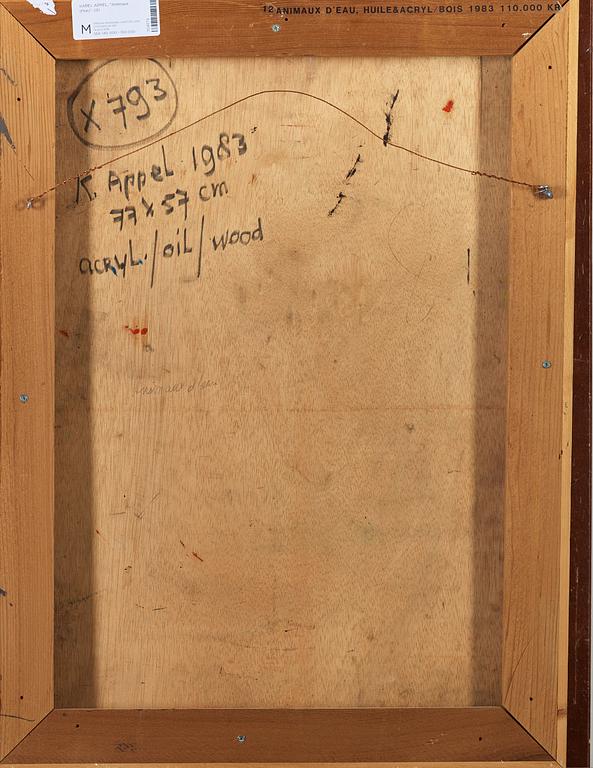 KAREL APPEL, "Animaux
M
12 ANIMAUX D'EAU, HUILE&ACRYL/BOIS 1983 110.000 KR
X 793
K. Appel 1983
77 x 57 cm
acryl./oil/wood
Animaux d'eau